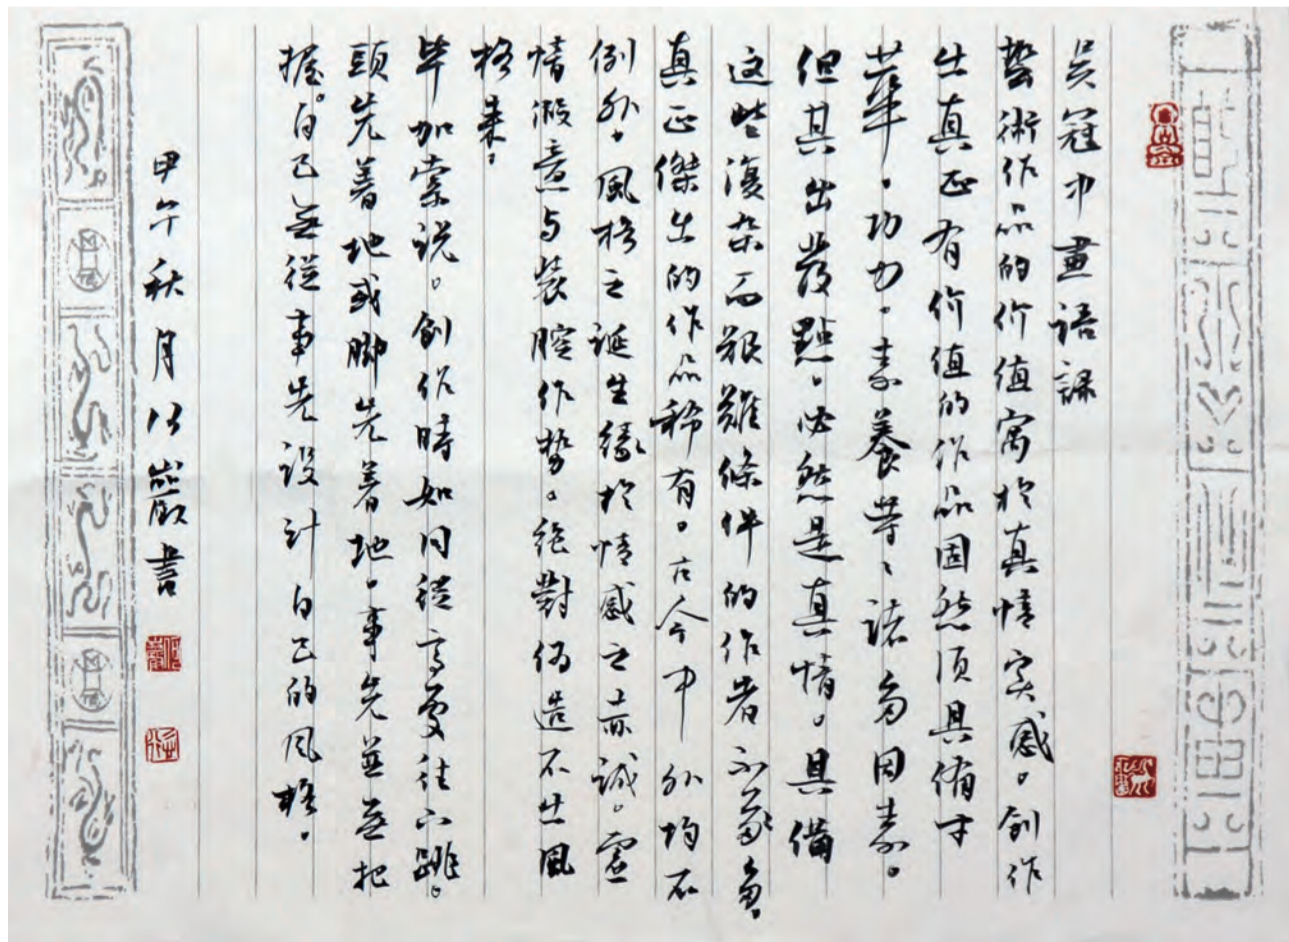 吴冠中畫語録
藝術作品的价值寓於真情实感。創作
出真正有价值的作品固然須具備才
華。功力。素養等、諸多因素。
但其出發點。必然是真情。具備
这些復杂而艰難條件的作者不多多。
真正傑出的作品稀有。古今中外均不
例外。風格之诞生缘於情感之赤誠。虚
情假意与装腔作势。绝對偽造不出風
格来。
毕加索说。創作時如同從高處往下跳。
頭先着地或脚先着地。事先並無把
握。自己無從事先设计自己的风格。
甲午秋月 巖書